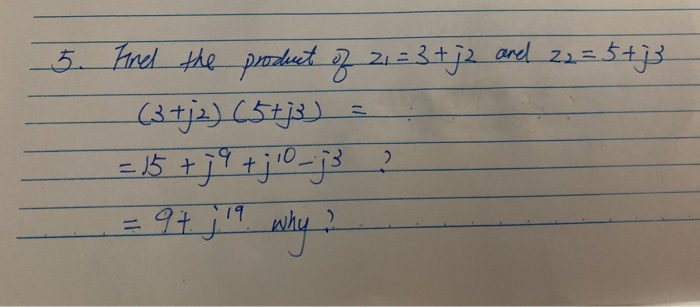 5. Find the product of z₁ = 3 + j2 and z₂ = 5 + j3
(3+j2) (5+j3) =
= 15 + j⁹ + j¹⁰ - j3 ?
= 9 + j¹⁹ why ?